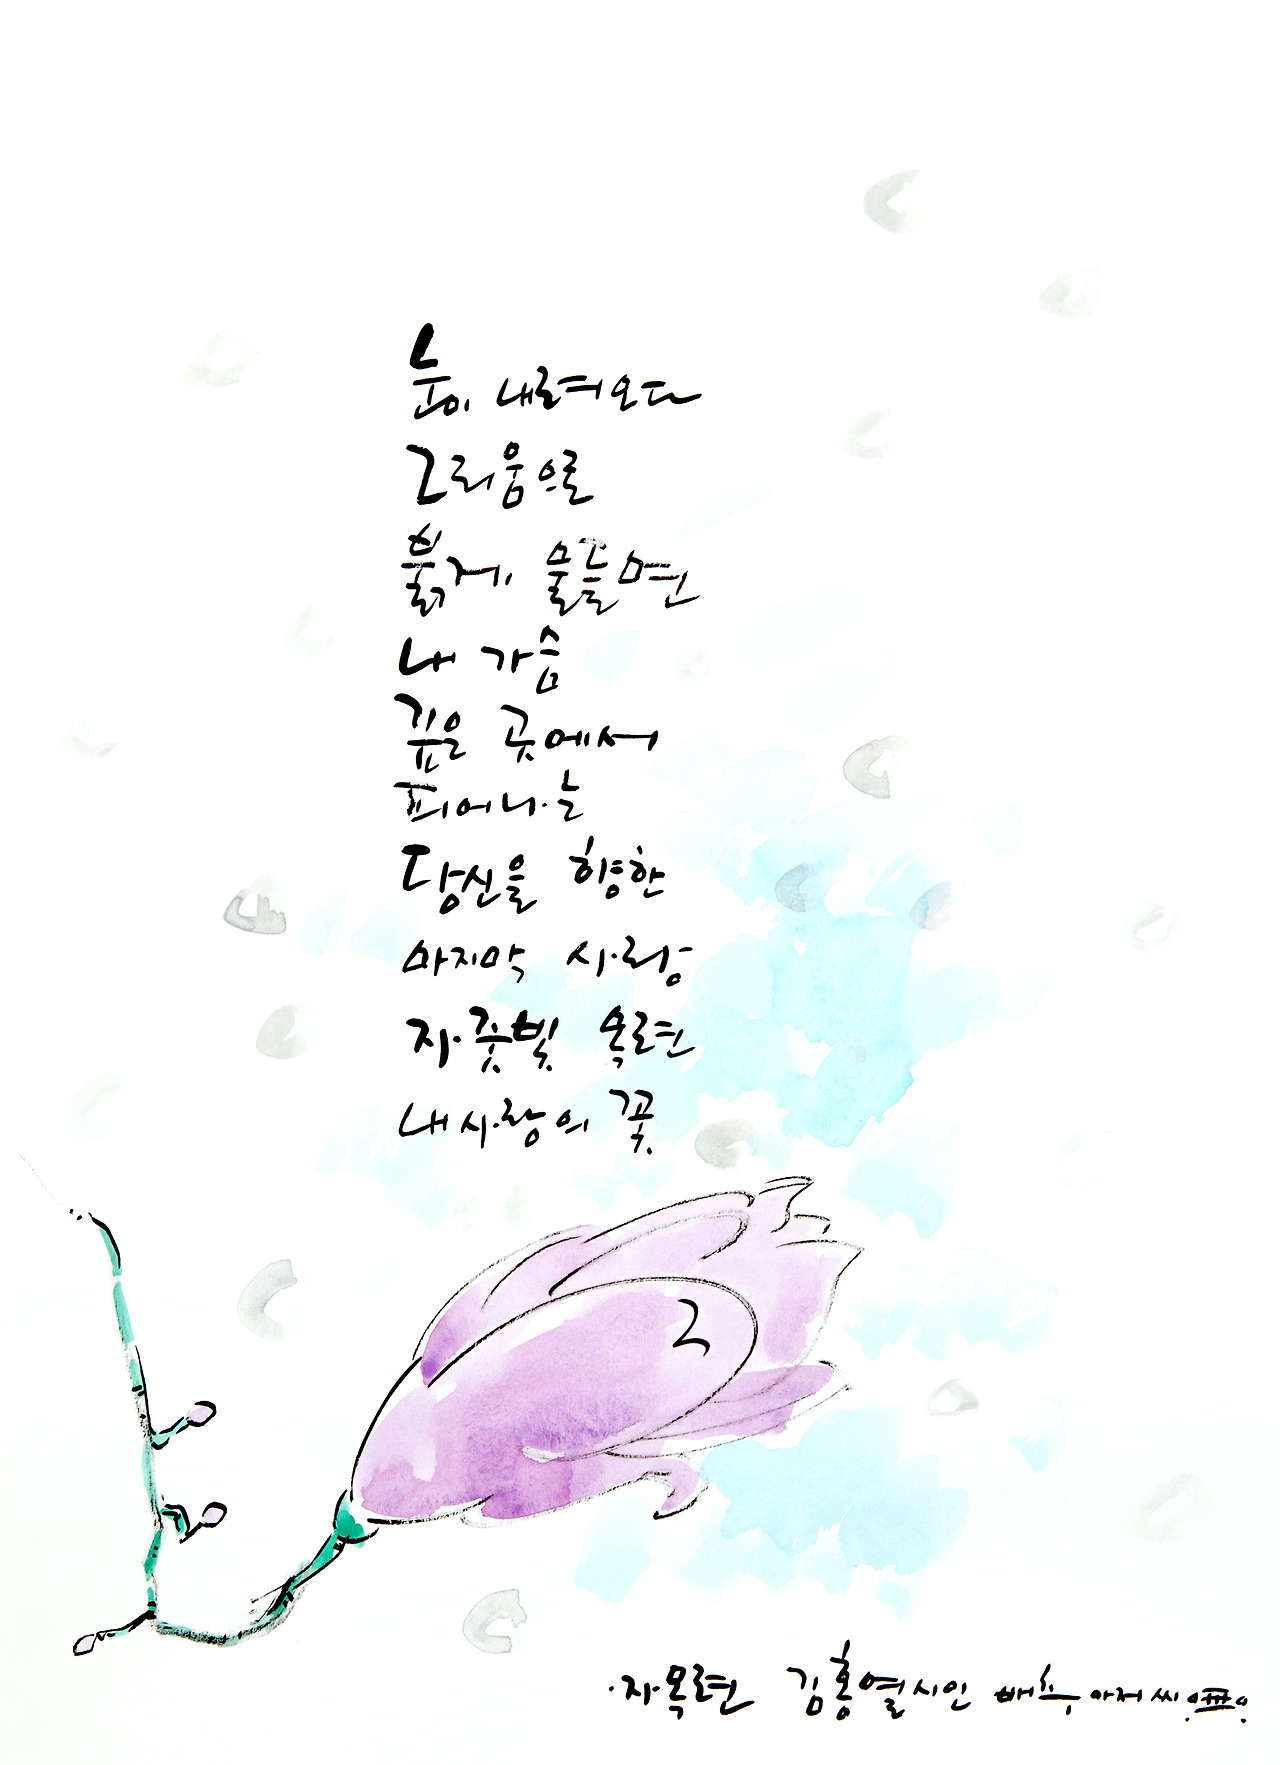 눈이 내려오다
그리움으로
붉게 물들면
내 가슴
깊은 곳에서
피어나는
당신을 향한
마지막 사랑
자줏빛 목련
내 사랑의 꽃
자목련 김홍열시인 배추아저씨